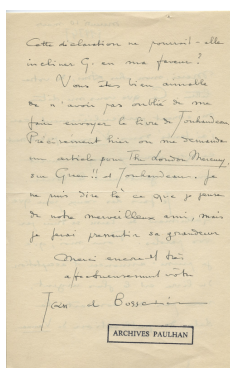 Cette déclaration ne pourrait-elle
incliner G. en ma faveur?
Vous êtes bien aimable
de n'avoir pas oublié de me
faire envoyer le livre de Jouhandeau
Précisément hier on me demande
un article pour The London Mercury,
sur Green!! et Jouhandeau. Je
ne puis dire là ce que je pense
de notre merveilleux ami, mais
je ferai pressentir sa grandeur
Merci encore et très
affectueusement vôtre
Jean de Bosschère
ARCHIVES PAULHAN